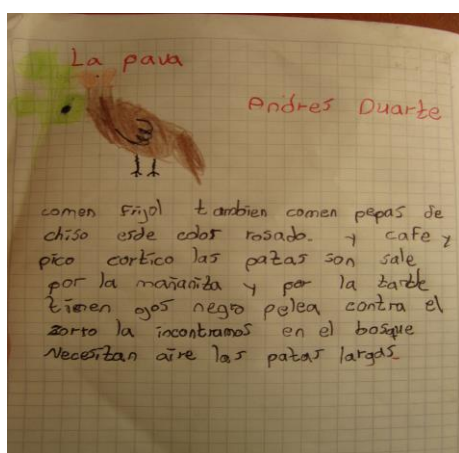 La pava
Andres Duarte
comen frijol tambien comen pepas de
chiso esde color rosado. y cafe y
pico cortico las patas son sale
por la mañanita y por la tarde
tienen ojos negro pelea contra el
zorro la incontramos en el bosque
Necesitan aire las patas largas